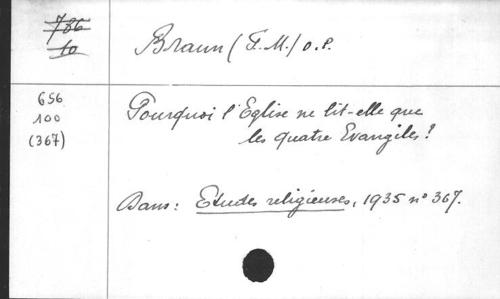 786
10
Braun (F.M.) o.p.
656
100
(367)
Pourquoi l'Eglise ne lit-elle que
les quatre Evangiles?
Dans: Etudes religieuses, 1935 n° 367.